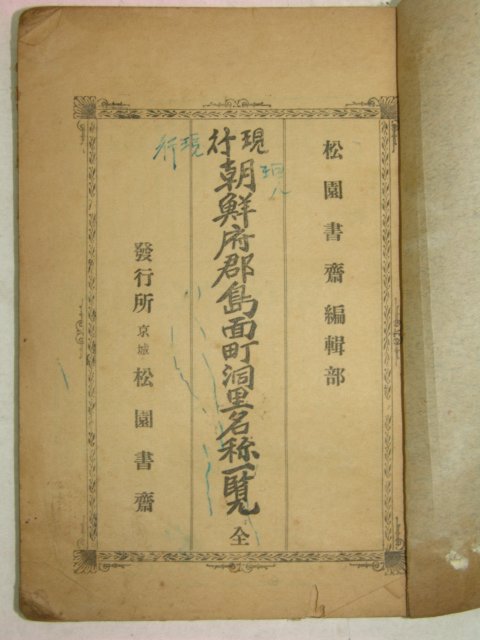 松園書齋編輯部
現行
朝鮮府郡島面町洞里名称一覽 全
發行所 京城 松園書齋
現行